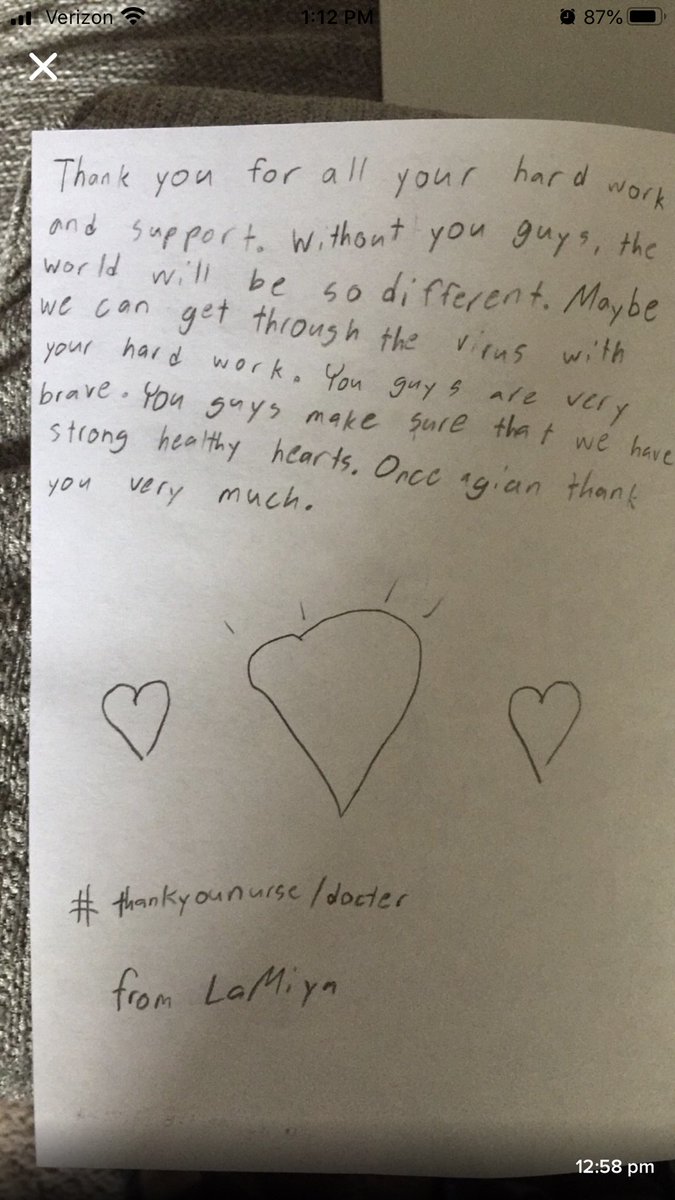 Verizon 1:12 PM 87%
Thank you for all your hard work
and support. Without you guys, the
world will be so different. Maybe
we can get through the virus with
your hard work. You guys are very
brave. You guys make sure that we have
strong healthy hearts. Once agian thank
you very much.
# thankyounurse/docter
from LaMiya
12:58 pm